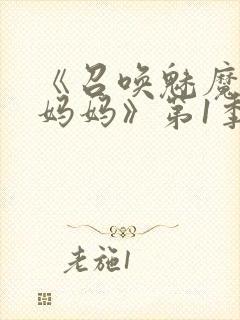 《召唤魅魔
妈妈》第1季
老施1